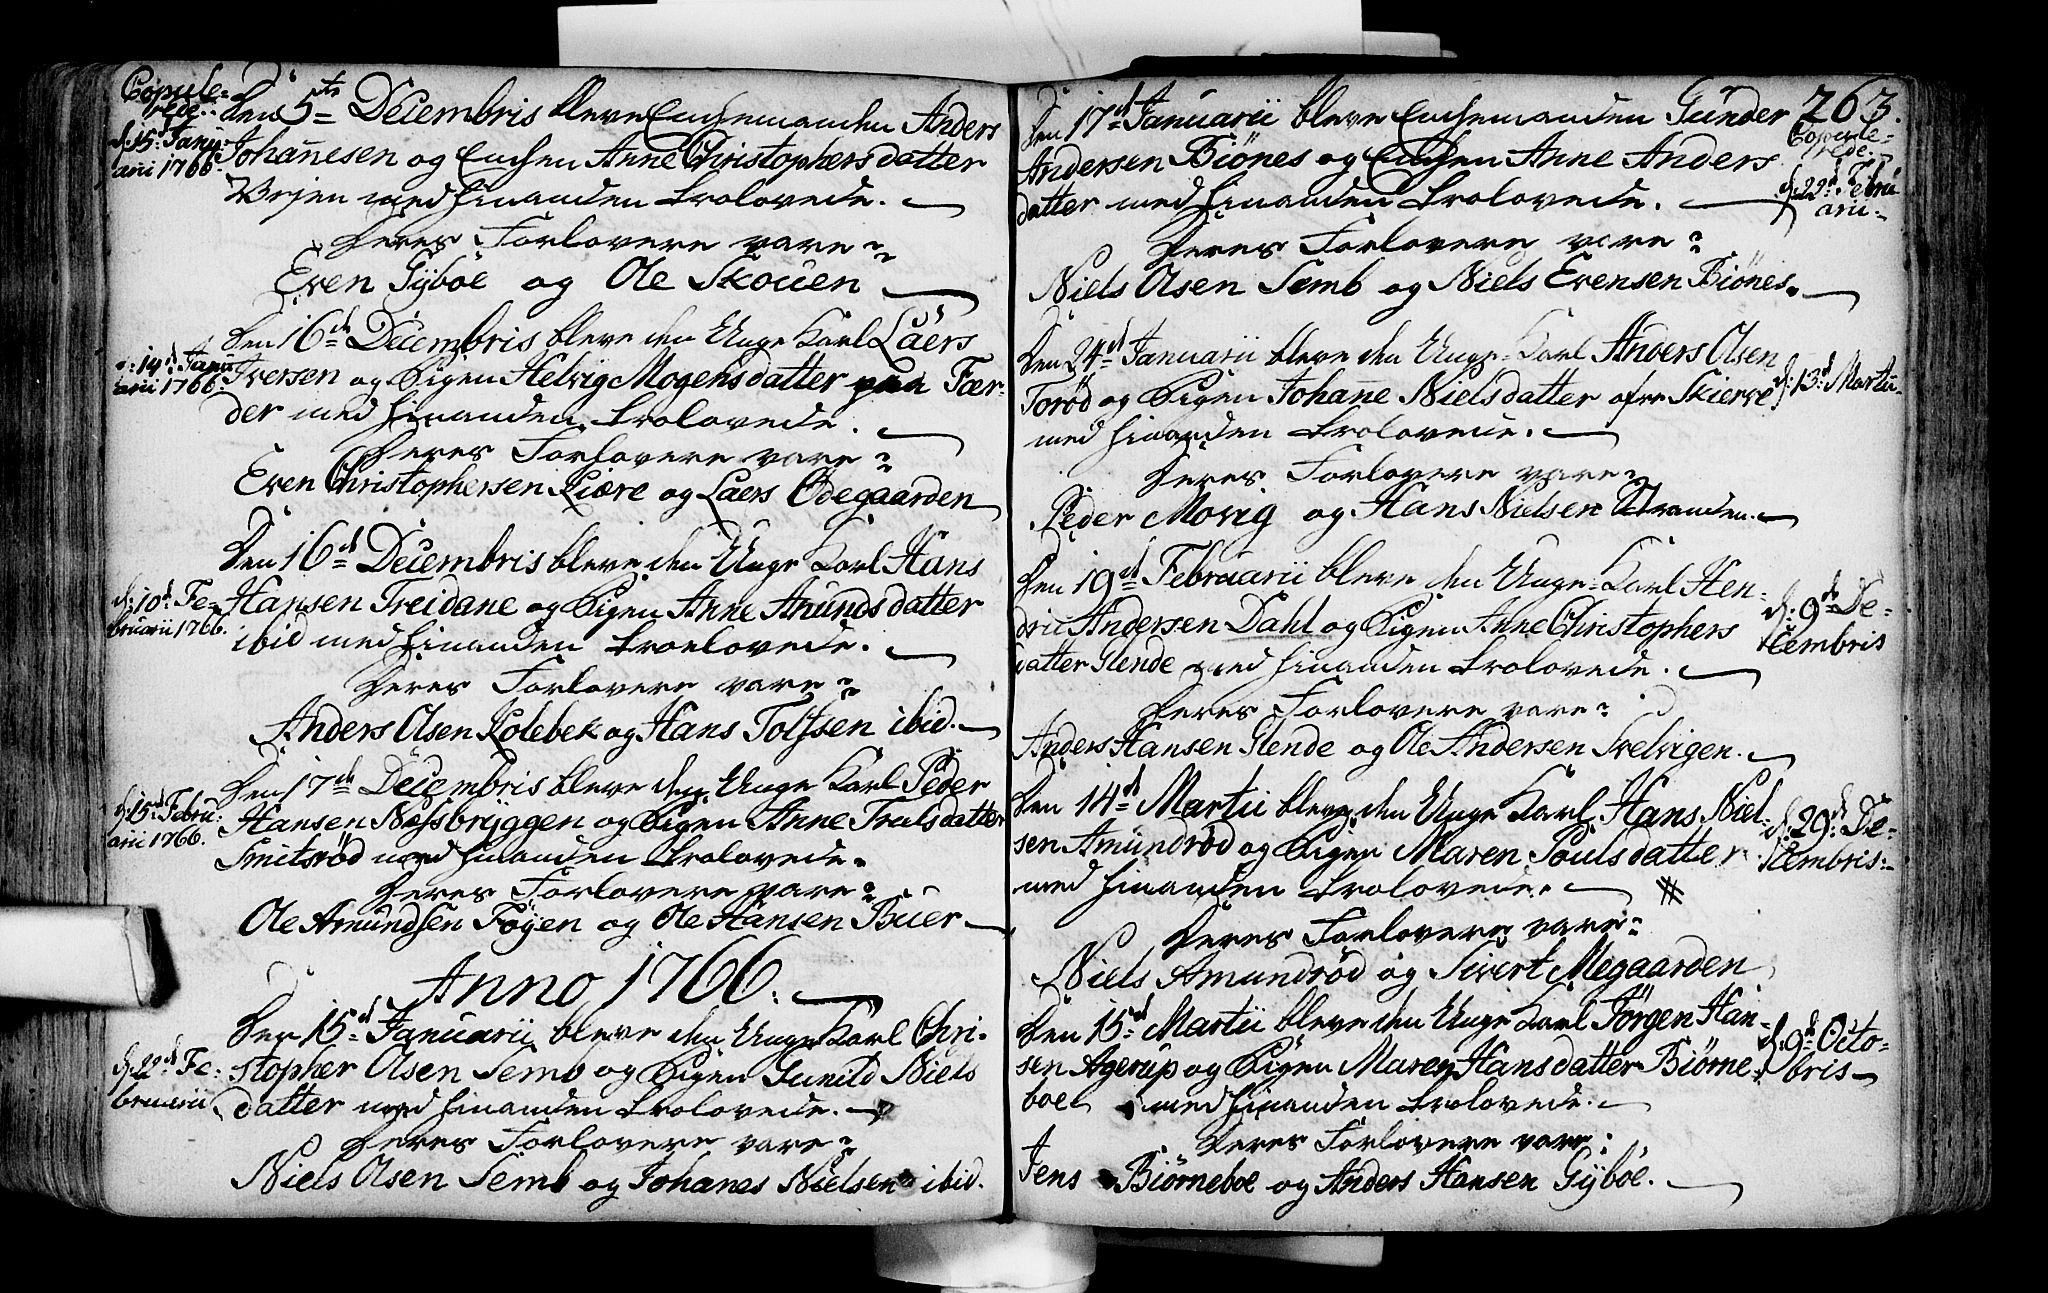 Copule-
rede.
d. 15. Janu-
arii 1766.
Den 5te Decembris bleve Enchemanden Anders
Johannesen og Enchen Anne Christophersdatter
Vrjen med hinanden trolovede.
Deres Forlovere vare:
Even Gÿböe og Ole Skouen
d. 14d. Janu
arii 1766.
Den 16d. Decembris bleve den Unge Karl Laers
Iversen og Pigen Helvig Mogensdatter paa Fær-
der med hinanden trolovede.
Deres Forlovere vare:
Even Christophersen Kiære og Laers Ødegaarden
d. 10d. Fe-
bruarii 1766.
Den 16d. Decembris bleve den Unge Karl Hans
Hansen Treidane og Pigen Anne Amundsdatter
ibid med hinanden troelovede.
Deres Forlovere vare:
Anders Olsen Holebek og Hans Tolfsen ibid.
d. 15d. Febru-
arii 1766.
Den 17d. Decembris bleve den Unge Karl Peder
Hansen Nessbrÿggen og Pigen Anne Trulsdatter
Smitsröd med hinanden trolovede.
Deres Forlovere vare:
Ole Amundsen Föÿen og Ole Hansen Buer
Anno 1766.
d. 22d. Fe-
bruarii
Den 15d. Januarii bleve den Unge Karl Chri-
stopher Olsen Semb og Pigen Gunild Niels
datter med hinanden trolovede.
Deres Forlovere vare:
Niels Olsen Semb og Johanes Nielsen ibid.
263.
Copule-
rede.
d. 22d. Febru
arii
Den 17d. Januarii bleve Enchemanden Gunder
Andersen Biönes og Enchen Anne Anders
datter med hinanden trolovede.
Deres Forlovere vare:
Niels Olsen Semb og Niels Evensen Biönes.
d. 13d. Martii
Den 24d. Januarii bleve den Unge Karl Anders Olsen
Toröd og Pigen Johane Nielsdatter ofre Skierve
med hinanden trolovede.
Deres Forlovere vare:
Peder Movig og Hans Nielsen Stranden.
d. 9d. De-
cembris
Den 19d. Februarii bleve den Unge Karl Hen-
dric Andersen Dahl og Pigen Anne Christophers
datter Glende med hinanden trolovede.
Deres Forlovere vare:
Anders Hansen Glende og Ole Andersen Svelvigen.
d. 29d. De-
cembris.
Den 14d. Martii bleve den Unge Karl Hans Niel-
sen Amundröd og Pigen Maren Poulsdatter
med hinanden trolovede.
Deres Forlovere vare:
Niels Amundröd og Sivert Megaarden
d. 9d. Octo-
bris
Den 15d. Martii bleve den Unge Karl Jörgen Han-
sen Agerup og Pigen Maren Hansdatter Biörne-
boe med hinanden trolovede.
Deres Forlovere vare:
Jens Biörneboe og Anders Hansen Gÿböe.